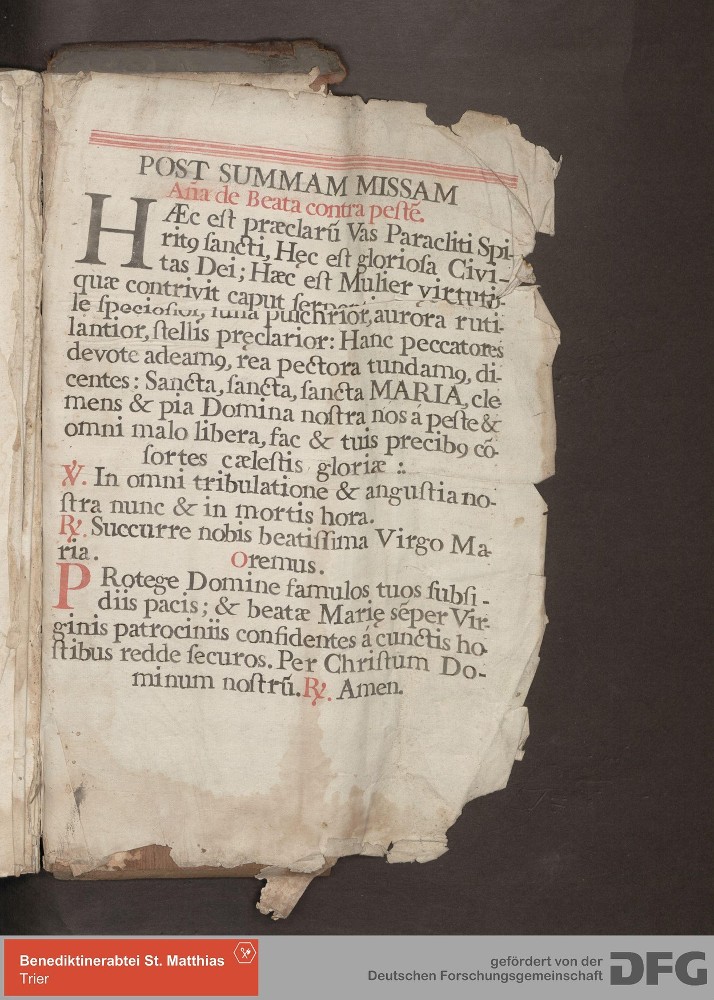 POST SUMMAM MISSAM
Aña de Beata contra pestē.
HÆc est præclarū Vas Paracliti Spi-
ritꝯ sancti, Hęc est gloriosa Civi-
tas Dei; Hæc est Mulier virtutis.
quæ contrivit caput
le speciosior, luna pulchrior, aurora ruti-
lantior, stellis pręclarior: Hanc peccatores
devote adeamꝯ, rea pectora tundamꝯ, di-
centes: Sancta, sancta, sancta MARIA, cle
mens & pia Domina nostra nos a peste &
omni malo libera, fac & tuis precibꝯ cō-
sortes cælestis gloriæ :.
℣. In omni tribulatione & angustia no-
stra nunc & in mortis hora.
℟. Succurre nobis beatissima Virgo Ma-
ria. Oremus.
PRotege Domine famulos tuos subsi-
diis pacis; & beatæ Marię sēper Vir-
ginis patrociniis confidentes á cunctis ho-
stibus redde securos. Per Christum Do-
minum nostrū. ℟. Amen.
Benediktinerabtei St. Matthias
Trier
gefördert von der
Deutschen Forschungsgemeinschaft DFG